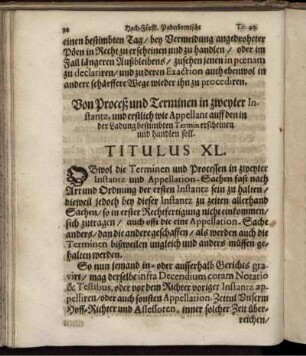 92 Hoch-Fürstl. Paderbornische Tit. 40.
einen bestimbten Tag/ bey Vermeidung angedroheter
Pöen in Recht zu erscheinen und zu handlen/ oder im
Fall längeren Außbleibens/ zusehen jenen in poenam
zu declariren/ und zu deren Exaction auch ebenwol in
andere schärffere Wege wieder ihn zu procediren.
Von Proceß und Terminen in zweyter In-
stantz, und erstlich wie Appellant auff den in
der Ladung bestimbten Termin erscheinen
und handlen soll.
TITULUS XL.
OBwol die Terminen und Processen in zweyter
Instantz und Appellation-Sachen fast nach
Art und Ordnung der ersten Instantz sein zu halten/
dieweil jedoch bey dieser Instantz zu zeiten allerhand
Sachen/ so in erster Rechtfertigung nicht einkommen/
sich zutragen/ auch offt die eine Appellation-Sache
anders/ dan die andere geschaffen/ als werden auch die
Terminen bißweilen ungleich und anders müssen ge-
halten werden.
So nun jemand in- oder ausserhalb Gerichts gra-
virt/ mag derselbe infra Decendium coram Notario
& Testibus, oder vor dem Richter voriger Instantz ap-
pelliren/ oder auch sonsten Appellation-Zettul Unserm
Hoff-Richter und Assessoren, inner solcher Zeit über-
reichen/